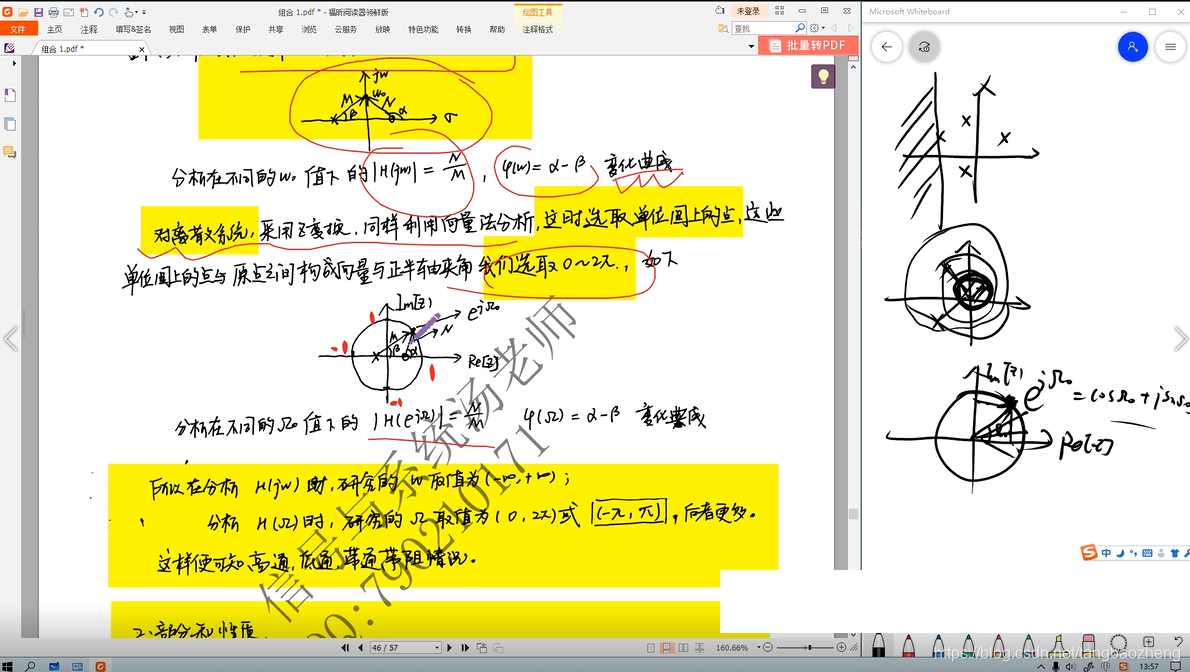 组合 1.pdf * - 福昕阅读器领鲜版
绘图工具
未登录
文件 主页 注释 填写&签名 视图 表单 保护 共享 浏览 云服务 放映 特色功能 转换 帮助 注释格式
查找
组合 1.pdf *
批量转PDF
jw
M w₀ N
β α σ
分析在不同的 w₀ 值下的 |H(jw)| = N/M , φ(w) = α-β 变化曲线
对离散系统, 采用Z变换, 同样利用向量法分析, 这时选取单位圆上的点, 这些
单位圆上的点与原点之间构成向量与正半轴夹角我们选取 0~2π, 如下
Im[z]
e^jΩ₀
M N
β α
Re[z]
1
-1
1
-1
分析在不同的 Ω₀ 值下的 |H(e^jΩ)| = N/M φ(Ω) = α-β 变化曲线
所以在分析 H(jw) 时, 研究的 w 取值为 (-∞, +∞);
分析 H(Ω) 时, 研究的 Ω 取值为 (0, 2π) 或 (-π, π), 后者更多.
这样便可知高通, 低通, 带通带阻情况.
信号与系统汤老师
QQ: 790210171
46 / 57
160.66%
Microsoft Whiteboard
Im[z]
e^jΩ₀ = cosΩ₀ + jsinΩ₀
Re[z]
中
https://blog.csdn.net/tangbaozheng
13:57